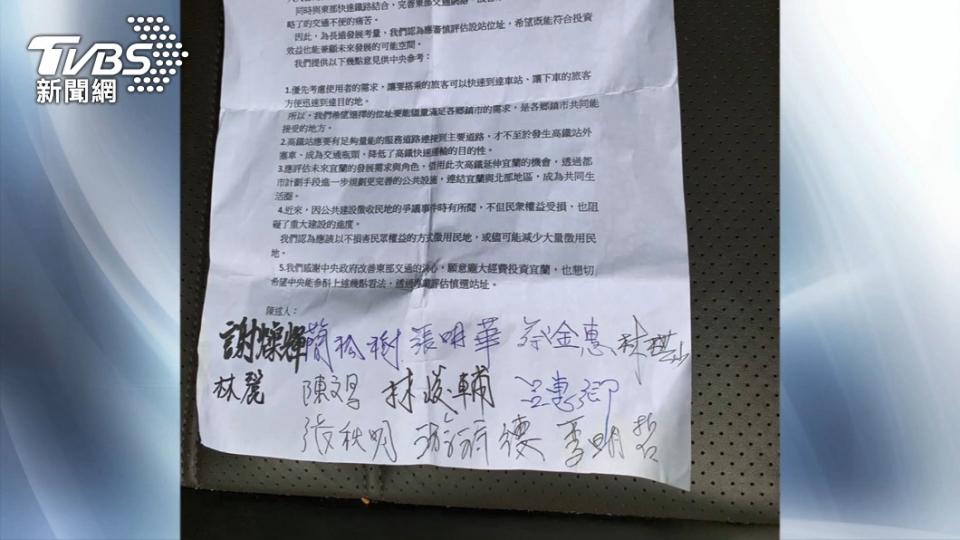 TVBS
新聞網
同時與東部快速鐵路結合，完善東部交通網絡，
略了的交通不便的痛苦。
因此，為長遠發展考量，我們認為應審慎評估設站位址，希望既能符合投資
效益也能兼顧未來發展的可能空間。
我們提供以下幾點意見供中央參考：
1.優先考慮使用者的需求，讓要搭乘的旅客可以快速到達車站、讓下車的旅客
方便迅速到達目的地。
所以，我們希望選擇的位址要能儘量滿足各鄉鎮市的需求，是各鄉鎮市共同能
接受的地方。
2.高鐵站應要有足夠量能的服務道路連接到主要道路，才不至於發生高鐵站外
塞車、成為交通瓶頸，降低了高鐵快速運輸的目的性。
3.應評估未來宜蘭的發展需求與角色，借用此次高鐵延伸宜蘭的機會，透過都
市計劃手段進一步規劃更完善的公共設施，連結宜蘭與北部地區，成為共同生
活圈。
4.近來，因公共建設徵收民地的爭議事件時有所聞，不但民衆權益受損，也阻
礙了重大建設的進度。
我們認為應該以不損害民眾權益的方式徵用民地，或儘可能減少大量徵用民
地。
5.我們感謝中央政府改善東部交通的決心，願意龐大經費投資宜蘭，也懇切
希望中央能參酌上述幾點看法，透過專業評估慎選站址。
陳述人：
謝燦輝 簡松樹 張明華 蔡金惠 林棋山
林麗 陳文昌 林峻輔
張秋明 李明哲